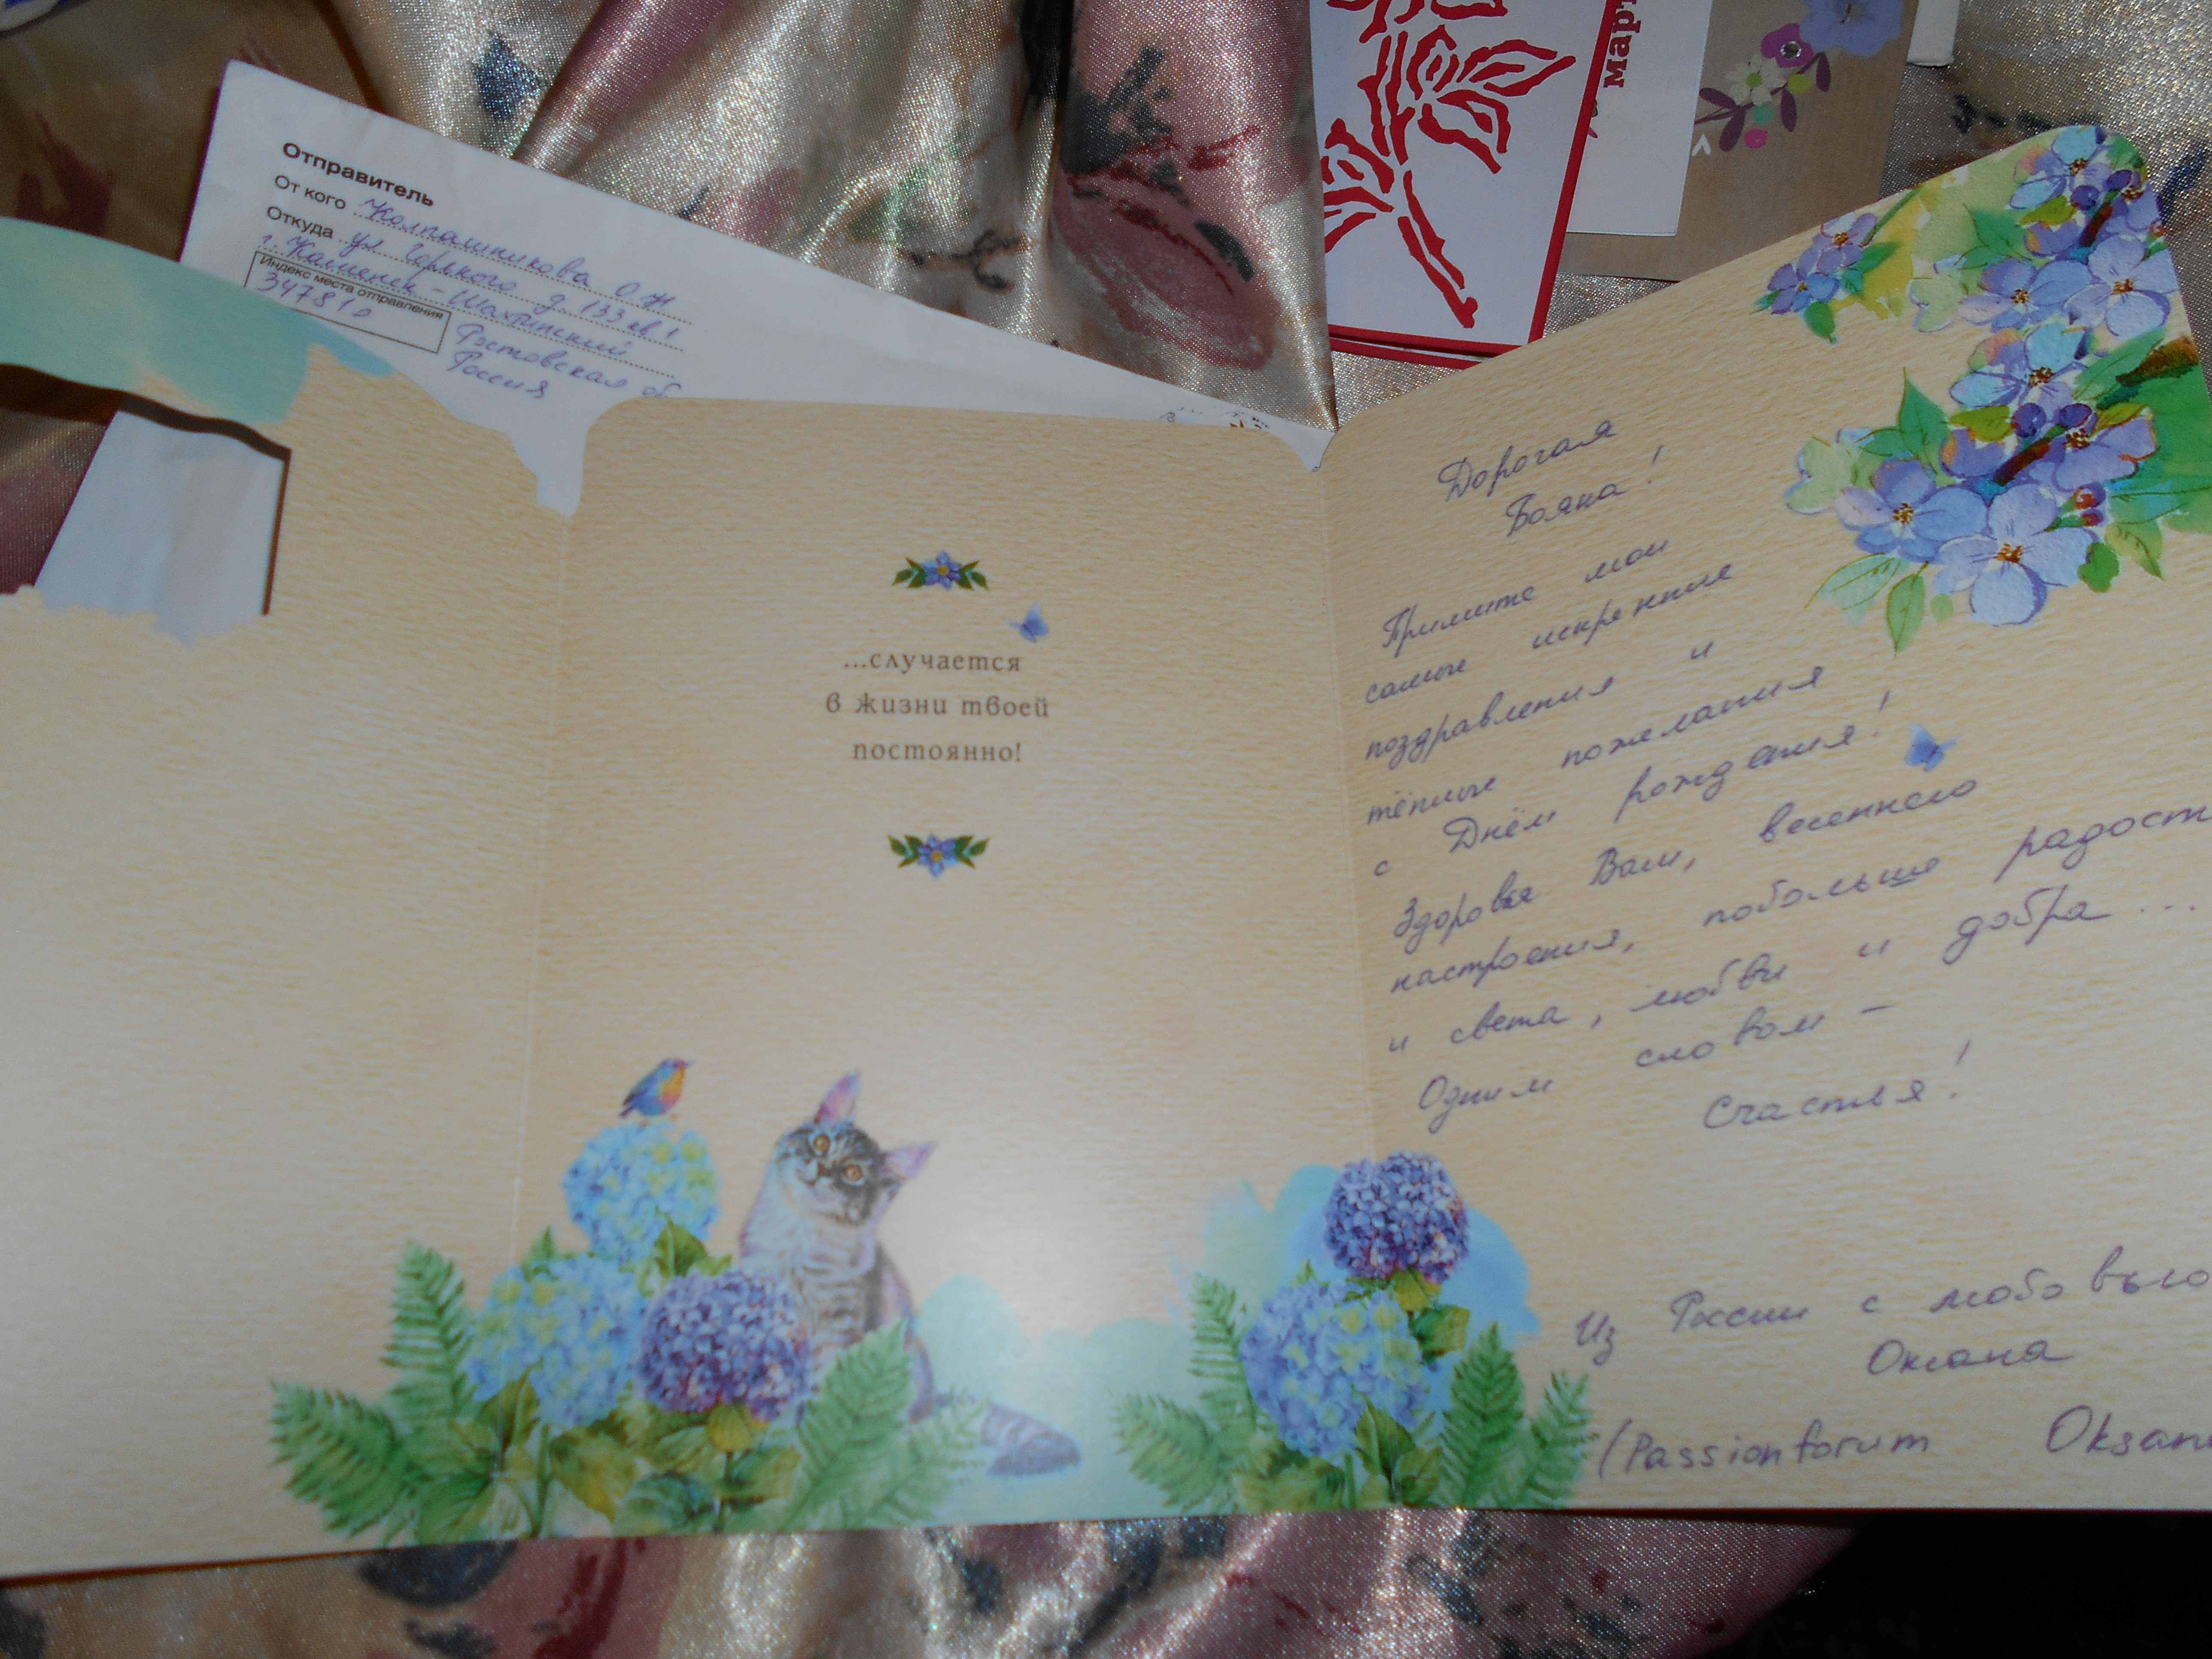 Отправитель
От кого Колпашникова О.Н.
Откуда ул. Горького д. 133 кв 1
г. Каменск-Шахтинский
Индекс места отправления
347810
Ростовская об
Россия
март
...случается
в жизни твоей
постоянно!
Дорогая
Бояна!
Примите мои
самые искренние
поздравления и
тёплые пожелания
с Днём рождения!
Здоровья Вам, весеннего
настроения, побольше радост
и света, любви и добра...
Одним словом –
Счастья!
Из России с любовью
Оксана
(Passionforum Oksana